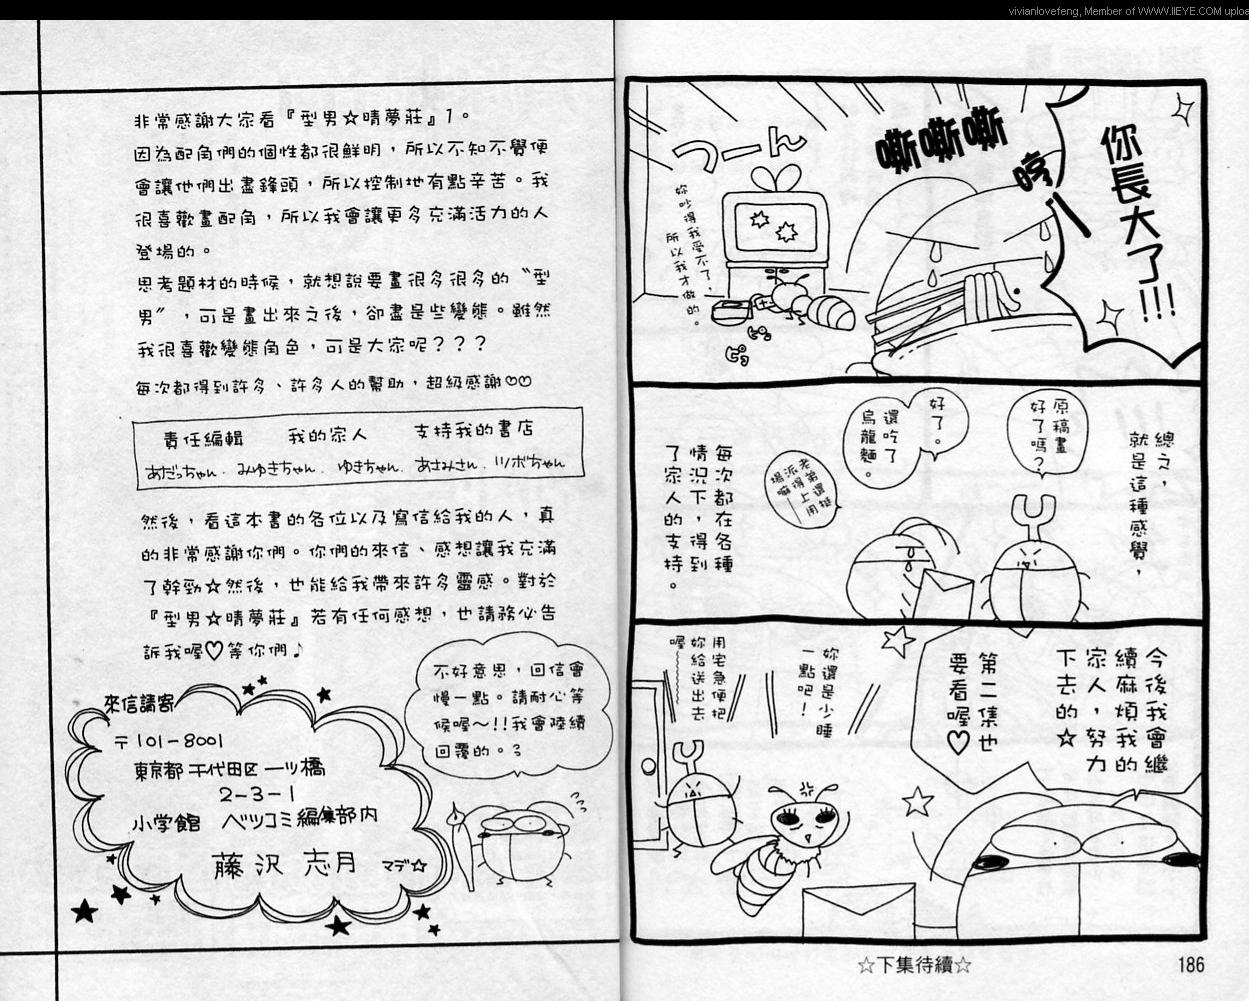 vivianlovefeng, Member of WWW.IIEYE.COM uploa
你長大了!!!
哼
嘶嘶嘶
つーん
妳吵得我受不了，
所以我才做的。
ピコ
ピコ
總之，
就是這種感覺，
原稿畫
好了嗎？
好了。
還吃了
烏龍麵。
老弟還挺
派得上用
場嘛
每次都在各種
情況下，得到
了家人的支持。
今後我會繼
續麻煩我的
家人，努力
下去的☆
第二集也
要看喔♡
妳還是少睡
一點吧！
用宅急便把
妳給送出去
喔～～～
☆下集待續☆
186
非常感謝大家看『型男☆晴夢莊』1。
因為配角們的個性都很鮮明，所以不知不覺便
會讓他們出盡鋒頭，所以控制地有點辛苦。我
很喜歡畫配角，所以我會讓更多充滿活力的人
登場的。
思考題材的時候，就想說要畫很多很多的〝型
男〞，可是畫出來之後，卻盡是些變態。雖然
我很喜歡變態角色，可是大家呢？？？
每次都得到許多、許多人的幫助，超級感謝♡♡
責任編輯 我的家人 支持我的書店
あだっちゃん．みゆきちゃん．ゆきちゃん．あさみさん．ツボちゃん
然後，看這本書的各位以及寫信給我的人，真
的非常感謝你們。你們的來信、感想讓我充滿
了幹勁☆然後，也能給我帶來許多靈感。對於
『型男☆晴夢莊』若有任何感想，也請務必告
訴我喔♡等你們♪
不好意思，回信會
慢一點。請耐心等
候喔～!!我會陸續
回覆的。
來信請寄
〒101-8001
東京都千代田区一ツ橋
2-3-1
小学館 ベツコミ編集部内
藤沢志月 マデ☆